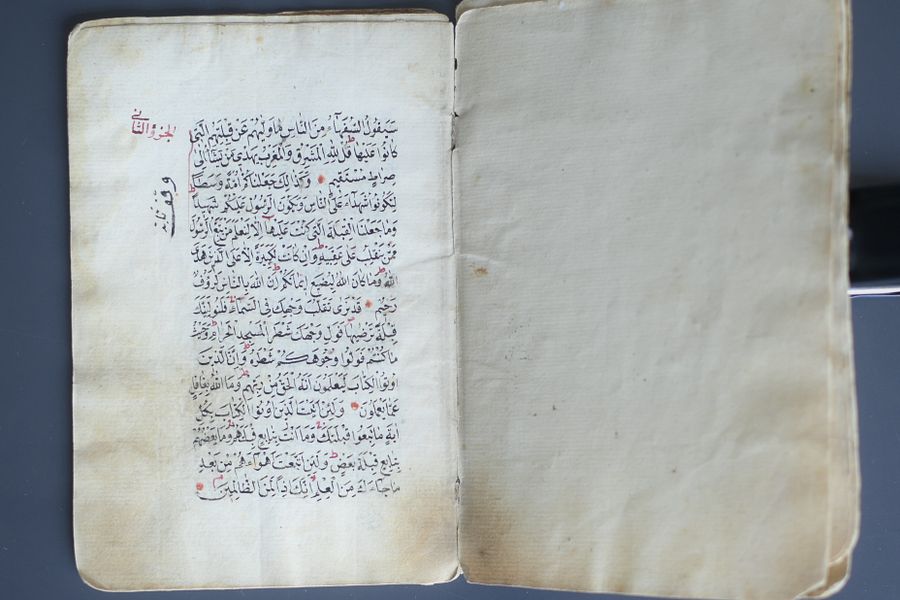 الجزو الثاني
وقف تابد
سيقول السفهاء من الناس ما وليهم عن قبلتهم التي
كانوا عليها قل لله المشرق والمغرب يهدي من يشاء الى
صراط مستقيم وكذلك جعلناكم امة وسطا
لتكونوا شهداء على الناس ويكون الرسول عليكم شهيدا
وما جعلنا القبلة التي كنت عليها الا لنعلم من يتبع الرسول
ممن ينقلب على عقبيه وان كانت لكبيرة الا على الذين هدى
الله وما كان الله ليضيع ايمانكم ان الله بالناس لرؤف
رحيم قد نرى تقلب وجهك في السماء فلنولينك
قبلة ترضيها فول وجهك شطر المسجد الحرام وحيث
ما كنتم فولوا وجوهكم شطره وان الذين
اوتوا الكتاب ليعلمون انه الحق من ربهم وما الله بغافل
عما يعملون ولئن اتيت الذين اوتوا الكتاب بكل
اية ما تبعوا قبلتك وما انت بتابع قبلتهم وما بعضهم
بتابع قبلة بعض ولئن اتبعت اهواءهم من بعد
ما جاءك من العلم انك اذا لمن الظالمين